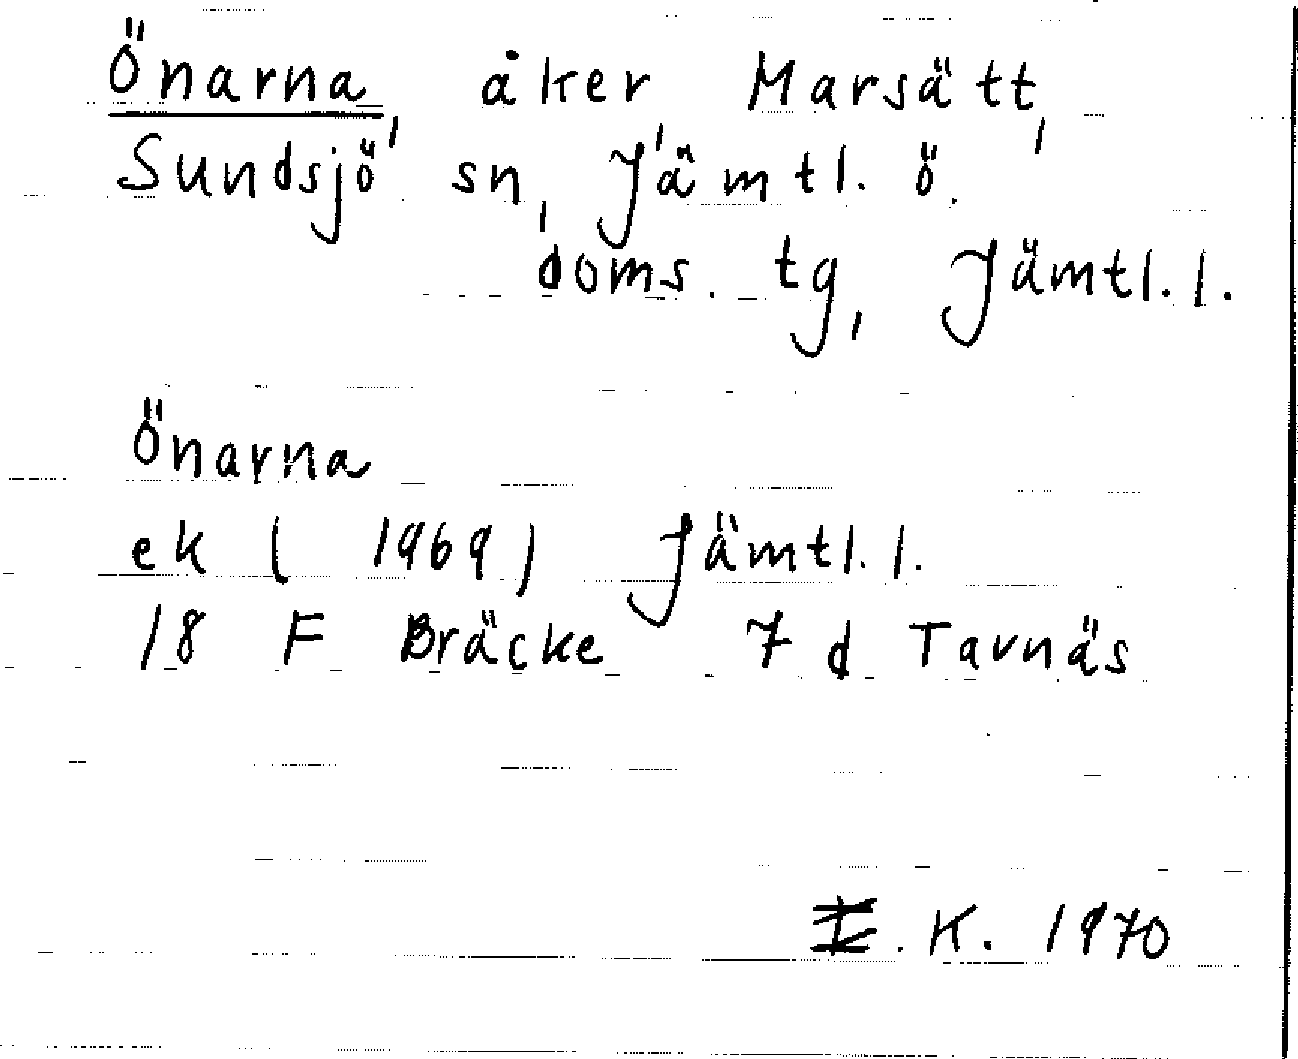 Önarna, åker, Marsätt,
Sundsjö sn, Jämtl. ö.
doms. tg, Jämtl. l.
Önarna
ek (1969) Jämtl. l.
18 F Bräcke 7 d Tavnäs
E. K. 1970